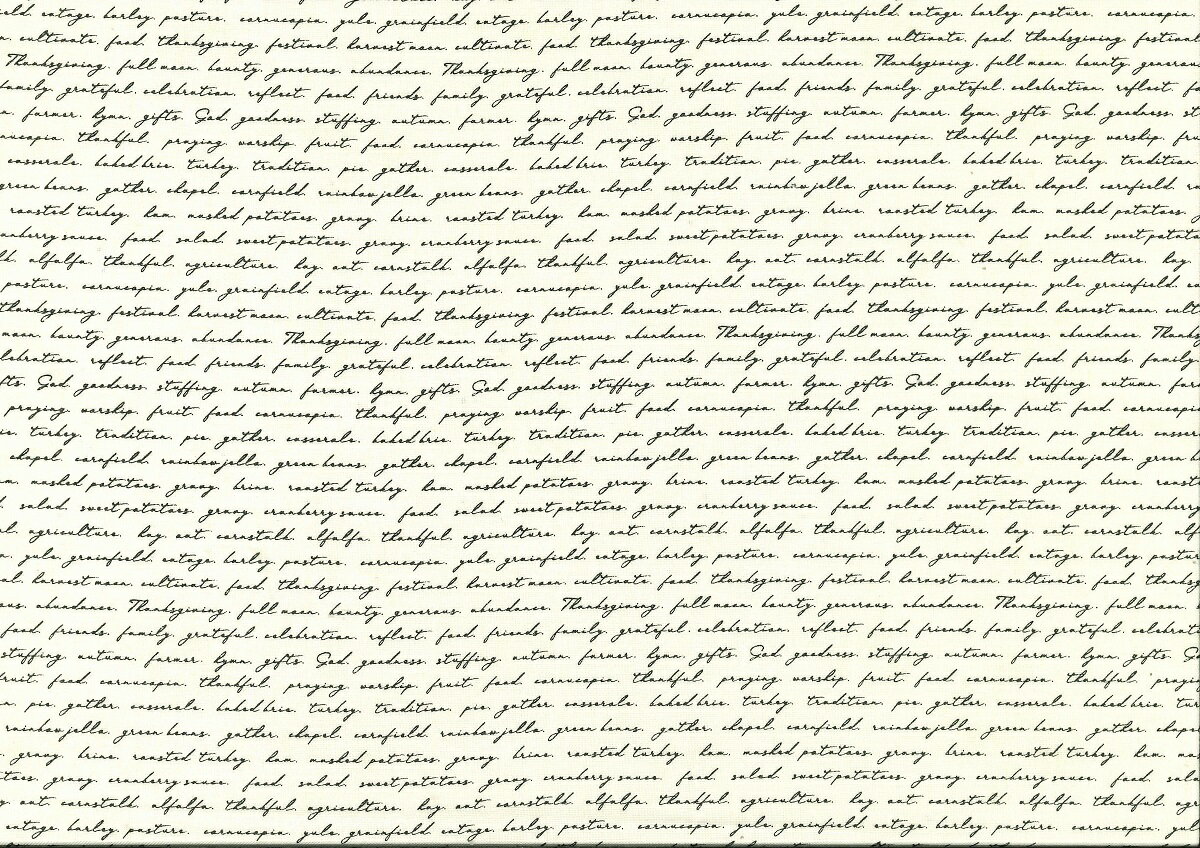 field. cottage. barley. pasture. cornucopia. yule. grainfield. cottage. barley. pasture. cornucopia. yule. grainfield. cottage. barley. pasture. cornucopia.
cultivate. food. thanksgiving. festival. harvest moon. cultivate. food. thanksgiving. festival. harvest moon. cultivate. food. thanksgiving. festival
Thanksgiving. full moon. bounty. generous. abundance. Thanksgiving. full moon. bounty. generous. abundance. Thanksgiving. full moon. bounty. generous
family. grateful. celebration. reflect. food. friends. family. grateful. celebration. reflect. food. friends. family. grateful. celebration. reflect.
farmer. hymn. gifts. God. goodness. stuffing. autumn. farmer. hymn. gifts. God. goodness. stuffing. autumn. farmer. hymn. gifts. God. goodness. st
nucopia. thankful. praying. worship. fruit. food. cornucopia. thankful. praying. worship. fruit. food. cornucopia. thankful. praying. worship. fru
casserole. baked brie. turkey. tradition. pie. gather. casserole. baked brie. turkey. tradition. pie. gather. casserole. baked brie. turkey. tradition.
green beans. gather. chapel. cornfield. rainbow jello. green beans. gather. chapel. cornfield. rainbow jello. green beans. gather. chapel. cornfield.
roasted turkey. ham. mashed potatoes. gravy. brine. roasted turkey. ham. mashed potatoes. gravy. brine. roasted turkey. ham. mashed potatoes.
anberry sauce. food. salad. sweet potatoes. gravy. cranberry sauce. food. salad. sweet potatoes. gravy. cranberry sauce. food. salad. sweet potato
alfalfa. thankful. agriculture. hay. oat. cornstalk. alfalfa. thankful. agriculture. hay. oat. cornstalk. alfalfa. thankful. agriculture. hay.
pasture. cornucopia. yule. grainfield. cottage. barley. pasture. cornucopia. yule. grainfield. cottage. barley. pasture. cornucopia. yule. grainfield.
thanksgiving. festival. harvest moon. cultivate. food. thanksgiving. festival. harvest moon. cultivate. food. thanksgiving. festival. harvest moon. cult
moon. bounty. generous. abundance. Thanksgiving. full moon. bounty. generous. abundance. Thanksgiving. full moon. bounty. generous. abundance. Thanks
lebration. reflect. food. friends. family. grateful. celebration. reflect. food. friends. family. grateful. celebration. reflect. food. friends. family.
fts. God. goodness. stuffing. autumn. farmer. hymn. gifts. God. goodness. stuffing. autumn. farmer. hymn. gifts. God. goodness. stuffing. autumn. far
praying. worship. fruit. food. cornucopia. thankful. praying. worship. fruit. food. cornucopia. thankful. praying. worship. fruit. food. cornucopia
ie. turkey. tradition. pie. gather. casserole. baked brie. turkey. tradition. pie. gather. casserole. baked brie. turkey. tradition. pie. gather. casser
chapel. cornfield. rainbow jello. green beans. gather. chapel. cornfield. rainbow jello. green beans. gather. chapel. cornfield. rainbow jello. green b
m. mashed potatoes. gravy. brine. roasted turkey. ham. mashed potatoes. gravy. brine. roasted turkey. ham. mashed potatoes. gravy. brine. roast
salad. sweet potatoes. gravy. cranberry sauce. food. salad. sweet potatoes. gravy. cranberry sauce. food. salad. sweet potatoes. gravy. cranberry
agriculture. hay. oat. cornstalk. alfalfa. thankful. agriculture. hay. oat. cornstalk. alfalfa. thankful. agriculture. hay. oat. cornstalk. alf
yule. grainfield. cottage. barley. pasture. cornucopia. yule. grainfield. cottage. barley. pasture. cornucopia. yule. grainfield. cottage. barley. pastu
al. harvest moon. cultivate. food. thanksgiving. festival. harvest moon. cultivate. food. thanksgiving. festival. harvest moon. cultivate. food. thanksg
ous. abundance. Thanksgiving. full moon. bounty. generous. abundance. Thanksgiving. full moon. bounty. generous. abundance. Thanksgiving. full moon.
food. friends. family. grateful. celebration. reflect. food. friends. family. grateful. celebration. reflect. food. friends. family. grateful. celebrat
stuffing. autumn. farmer. hymn. gifts. God. goodness. stuffing. autumn. farmer. hymn. gifts. God. goodness. stuffing. autumn. farmer. hymn. gifts. Go
fruit. food. cornucopia. thankful. praying. worship. fruit. food. cornucopia. thankful. praying. worship. fruit. food. cornucopia. thankful. prayi
pie. gather. casserole. baked brie. turkey. tradition. pie. gather. casserole. baked brie. turkey. tradition. pie. gather. casserole. baked brie. tur
rainbow jello. green beans. gather. chapel. cornfield. rainbow jello. green beans. gather. chapel. cornfield. rainbow jello. green beans. gather. chape
gravy. brine. roasted turkey. ham. mashed potatoes. gravy. brine. roasted turkey. ham. mashed potatoes. gravy. brine. roasted turkey. ham. ma
toes. gravy. cranberry sauce. food. salad. sweet potatoes. gravy. cranberry sauce. food. salad. sweet potatoes. gravy. cranberry sauce. food. sala
oat. cornstalk. alfalfa. thankful. agriculture. hay. oat. cornstalk. alfalfa. thankful. agriculture. hay. oat. cornstalk. alfalfa. thankful. agr
cottage. barley. pasture. cornucopia. yule. grainfield. cottage. barley. pasture. cornucopia. yule. grainfield. cottage. barley. pasture. cornucopia. yul